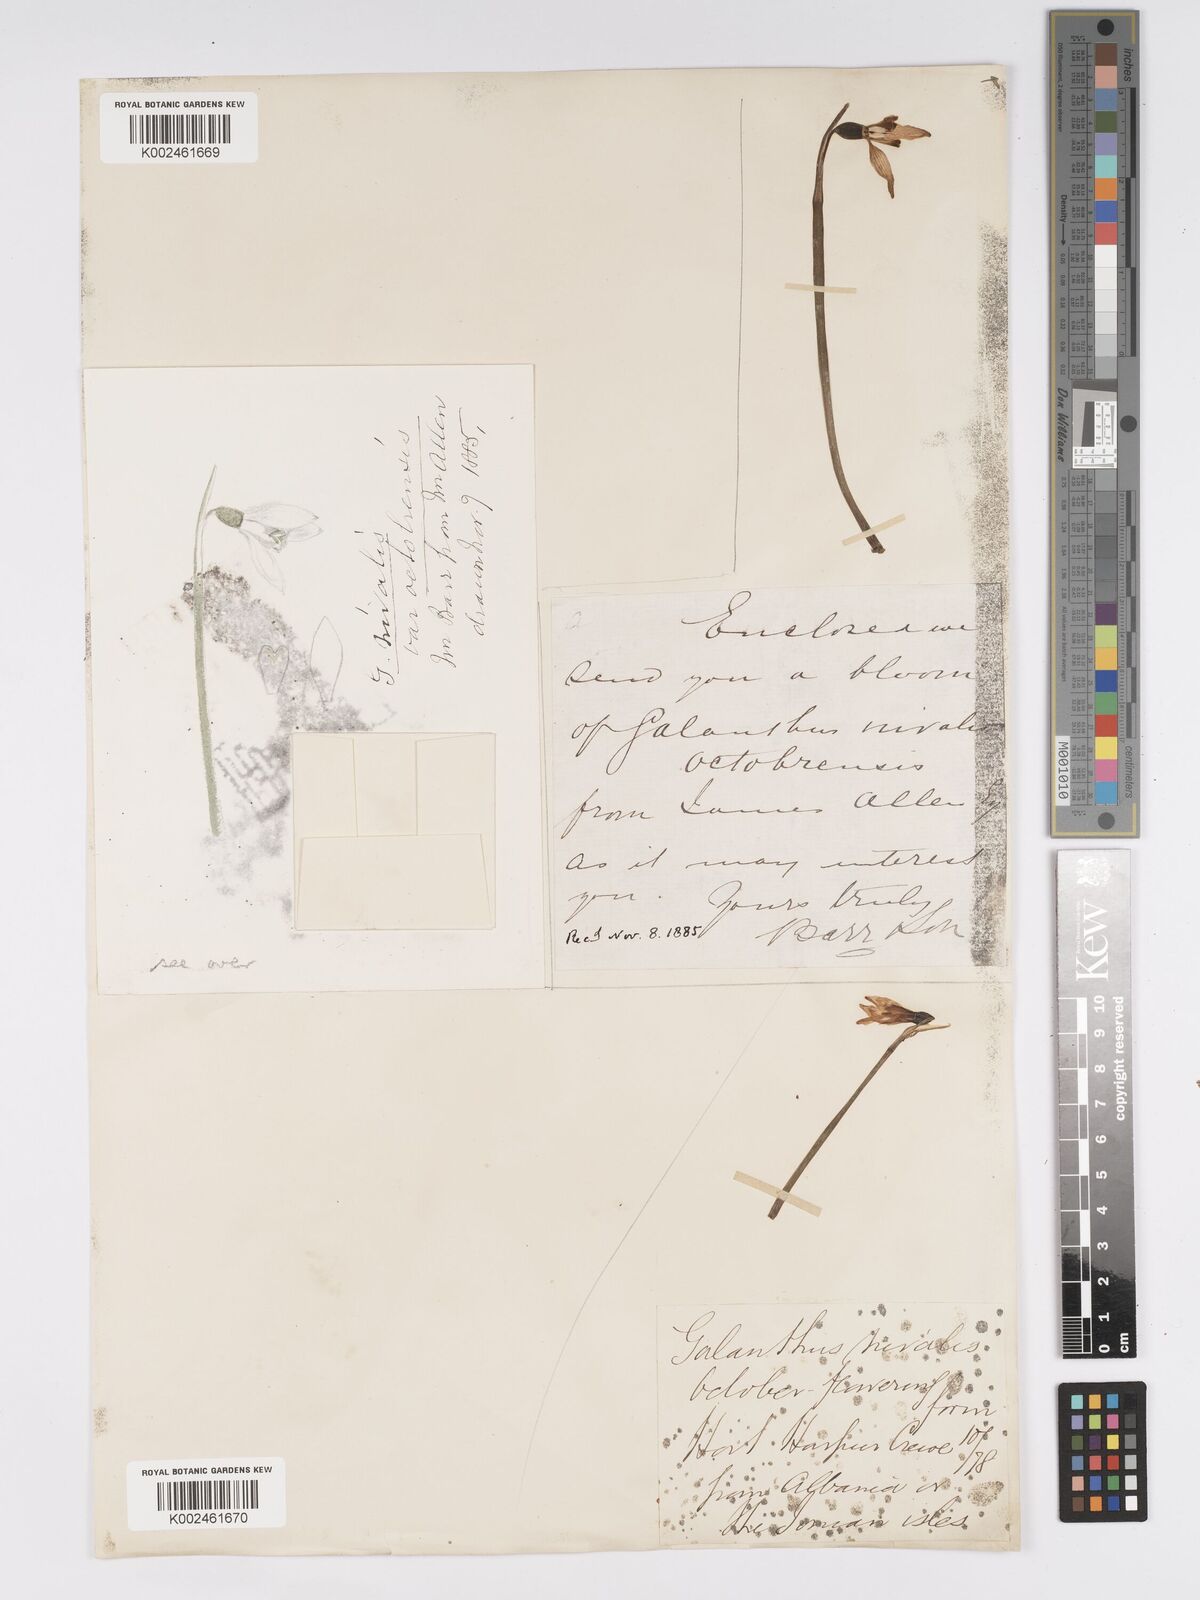 ROYAL BOTANIC GARDENS KEW
K002461669
G. nivalis
var octobrensis
Mr Barr from Mr Allen
drawn Nov. 9 1885,
see over
2
Enclosed we
send you a bloom
of Galanthus nivalis
octobrensis
from James Allen Esq
as it may interest
you. Yours truly
Barr & Son
Recd Nov. 8. 1885
Galanthus nivalis
October-flowering
form
Hort Harpur Crewe 10/78
from Albania or
the Ionian isles
ROYAL BOTANIC GARDENS KEW
K002461670
inches
centimeters
Don Williams
Density
M001010
Kew
copyright reserved
0 1 2 3 4 5 6 7 8 9 10
cm